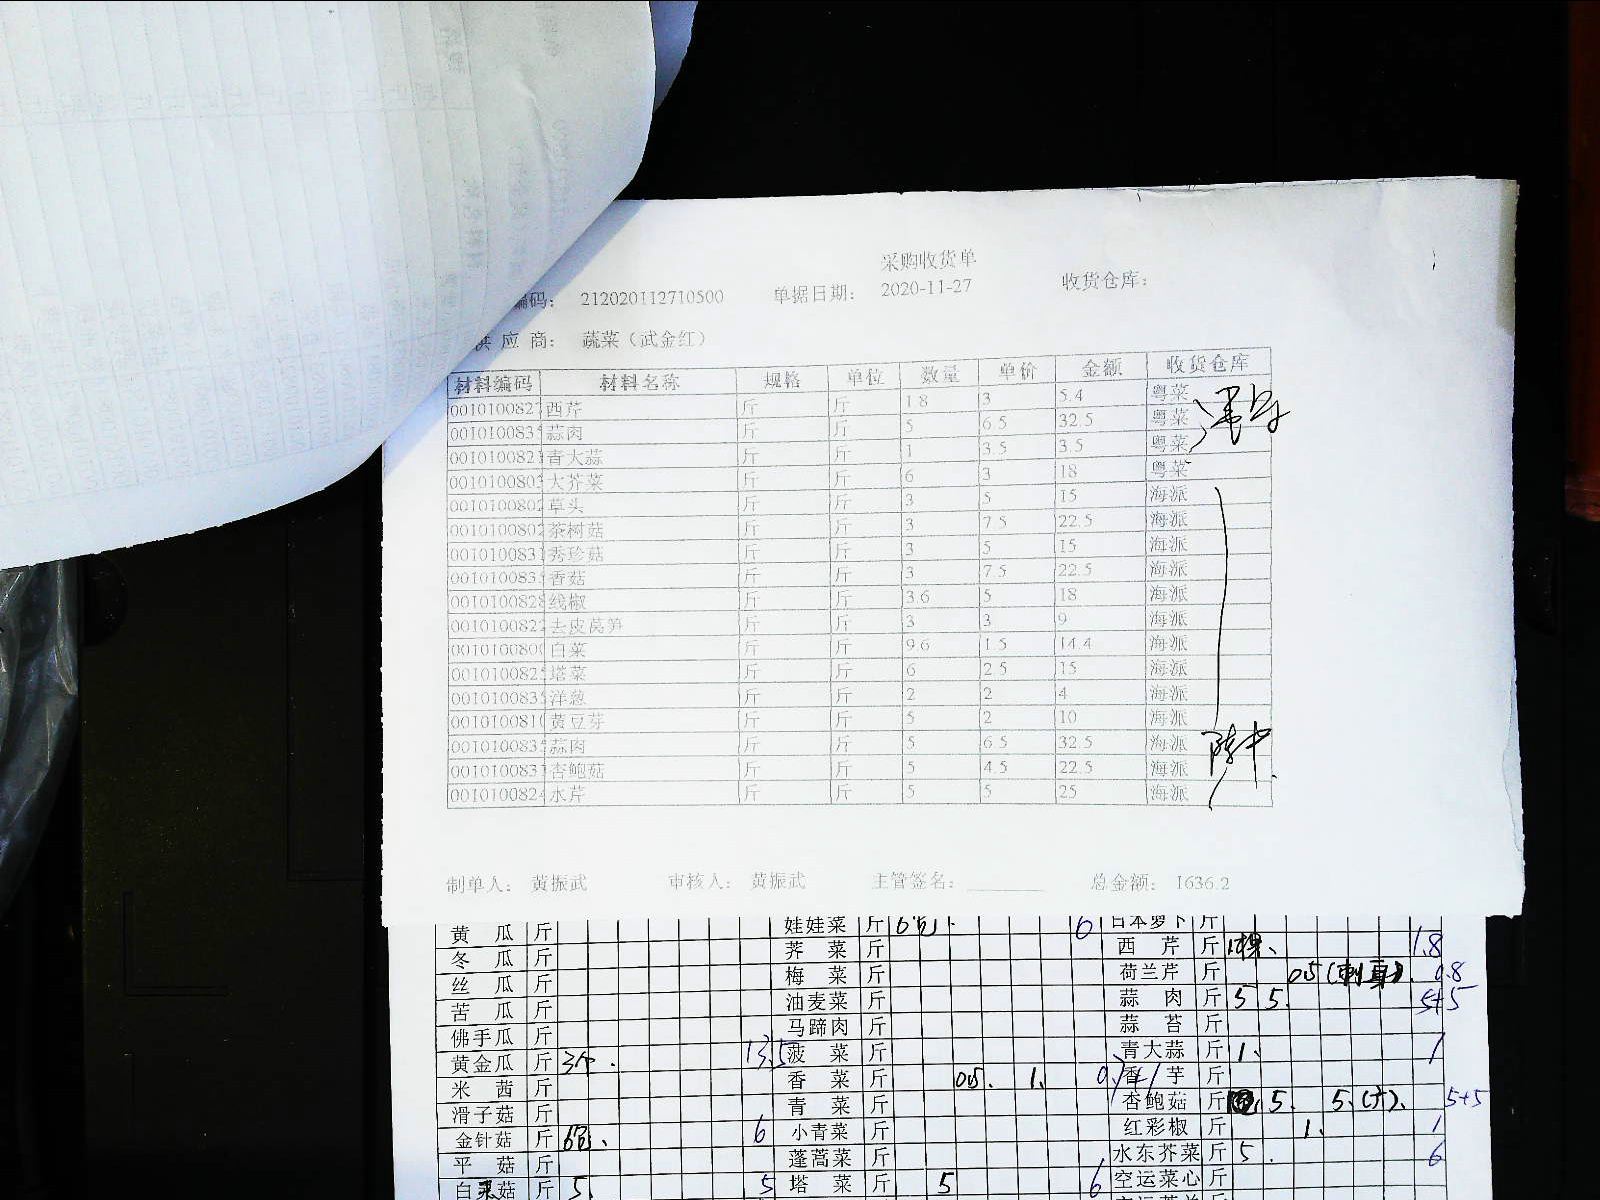 采购收货单
编码: 212020112710500 单据日期: 2020-11-27 收货仓库:
供应商: 蔬菜（武金红）
材料编码 材料名称 规格 单位 数量 单价 金额 收货仓库
001010082 西芹 斤 斤 1.8 3 5.4 粤菜
001010083 蒜肉 斤 斤 5 6.5 32.5 粤菜
001010082 青大蒜 斤 斤 1 3.5 3.5 粤菜
001010080 大芥菜 斤 斤 6 3 18 粤菜
001010080 草头 斤 斤 3 5 15 海派
001010080 茶树菇 斤 斤 3 7.5 22.5 海派
001010083 秀珍菇 斤 斤 3 5 15 海派
001010083 香菇 斤 斤 3 7.5 22.5 海派
001010082 线椒 斤 斤 3.6 5 18 海派
001010082 去皮莴笋 斤 斤 3 3 9 海派
001010080 白菜 斤 斤 9.6 1.5 14.4 海派
001010082 塔菜 斤 斤 6 2.5 15 海派
001010083 洋葱 斤 斤 2 2 4 海派
001010081 黄豆芽 斤 斤 5 2 10 海派
001010083 蒜肉 斤 斤 5 6.5 32.5 海派
001010083 杏鲍菇 斤 斤 5 4.5 22.5 海派
001010082 水芹 斤 斤 5 5 25 海派
制单人: 黄振武 审核人: 黄振武 主管签名: 总金额: 1636.2
黄瓜 斤 娃娃菜 斤 6 日本萝卜 斤
冬瓜 斤 荠菜 斤 西芹 斤 1.8
丝瓜 斤 梅菜 斤 荷兰芹 斤 05(刺身). 0.8
苦瓜 斤 油麦菜 斤 蒜肉 斤 5 5. 5+5
佛手瓜 斤 马蹄肉 斤 蒜苔 斤
黄金瓜 斤 3个. 13.5 菠菜 斤 青大蒜 斤 1、 1
米茜 斤 香菜 斤 05. 1. 香芋 斤
滑子菇 斤 青菜 斤 杏鲍菇 斤 5. 5. 5+5
金针菇 斤 6包、 6 小青菜 斤 红彩椒 斤 1. 1
平菇 斤 蓬蒿菜 斤 水东芥菜 斤 5. 6
白菇 斤 5. 5 塔菜 斤 5 6 空运菜心 斤